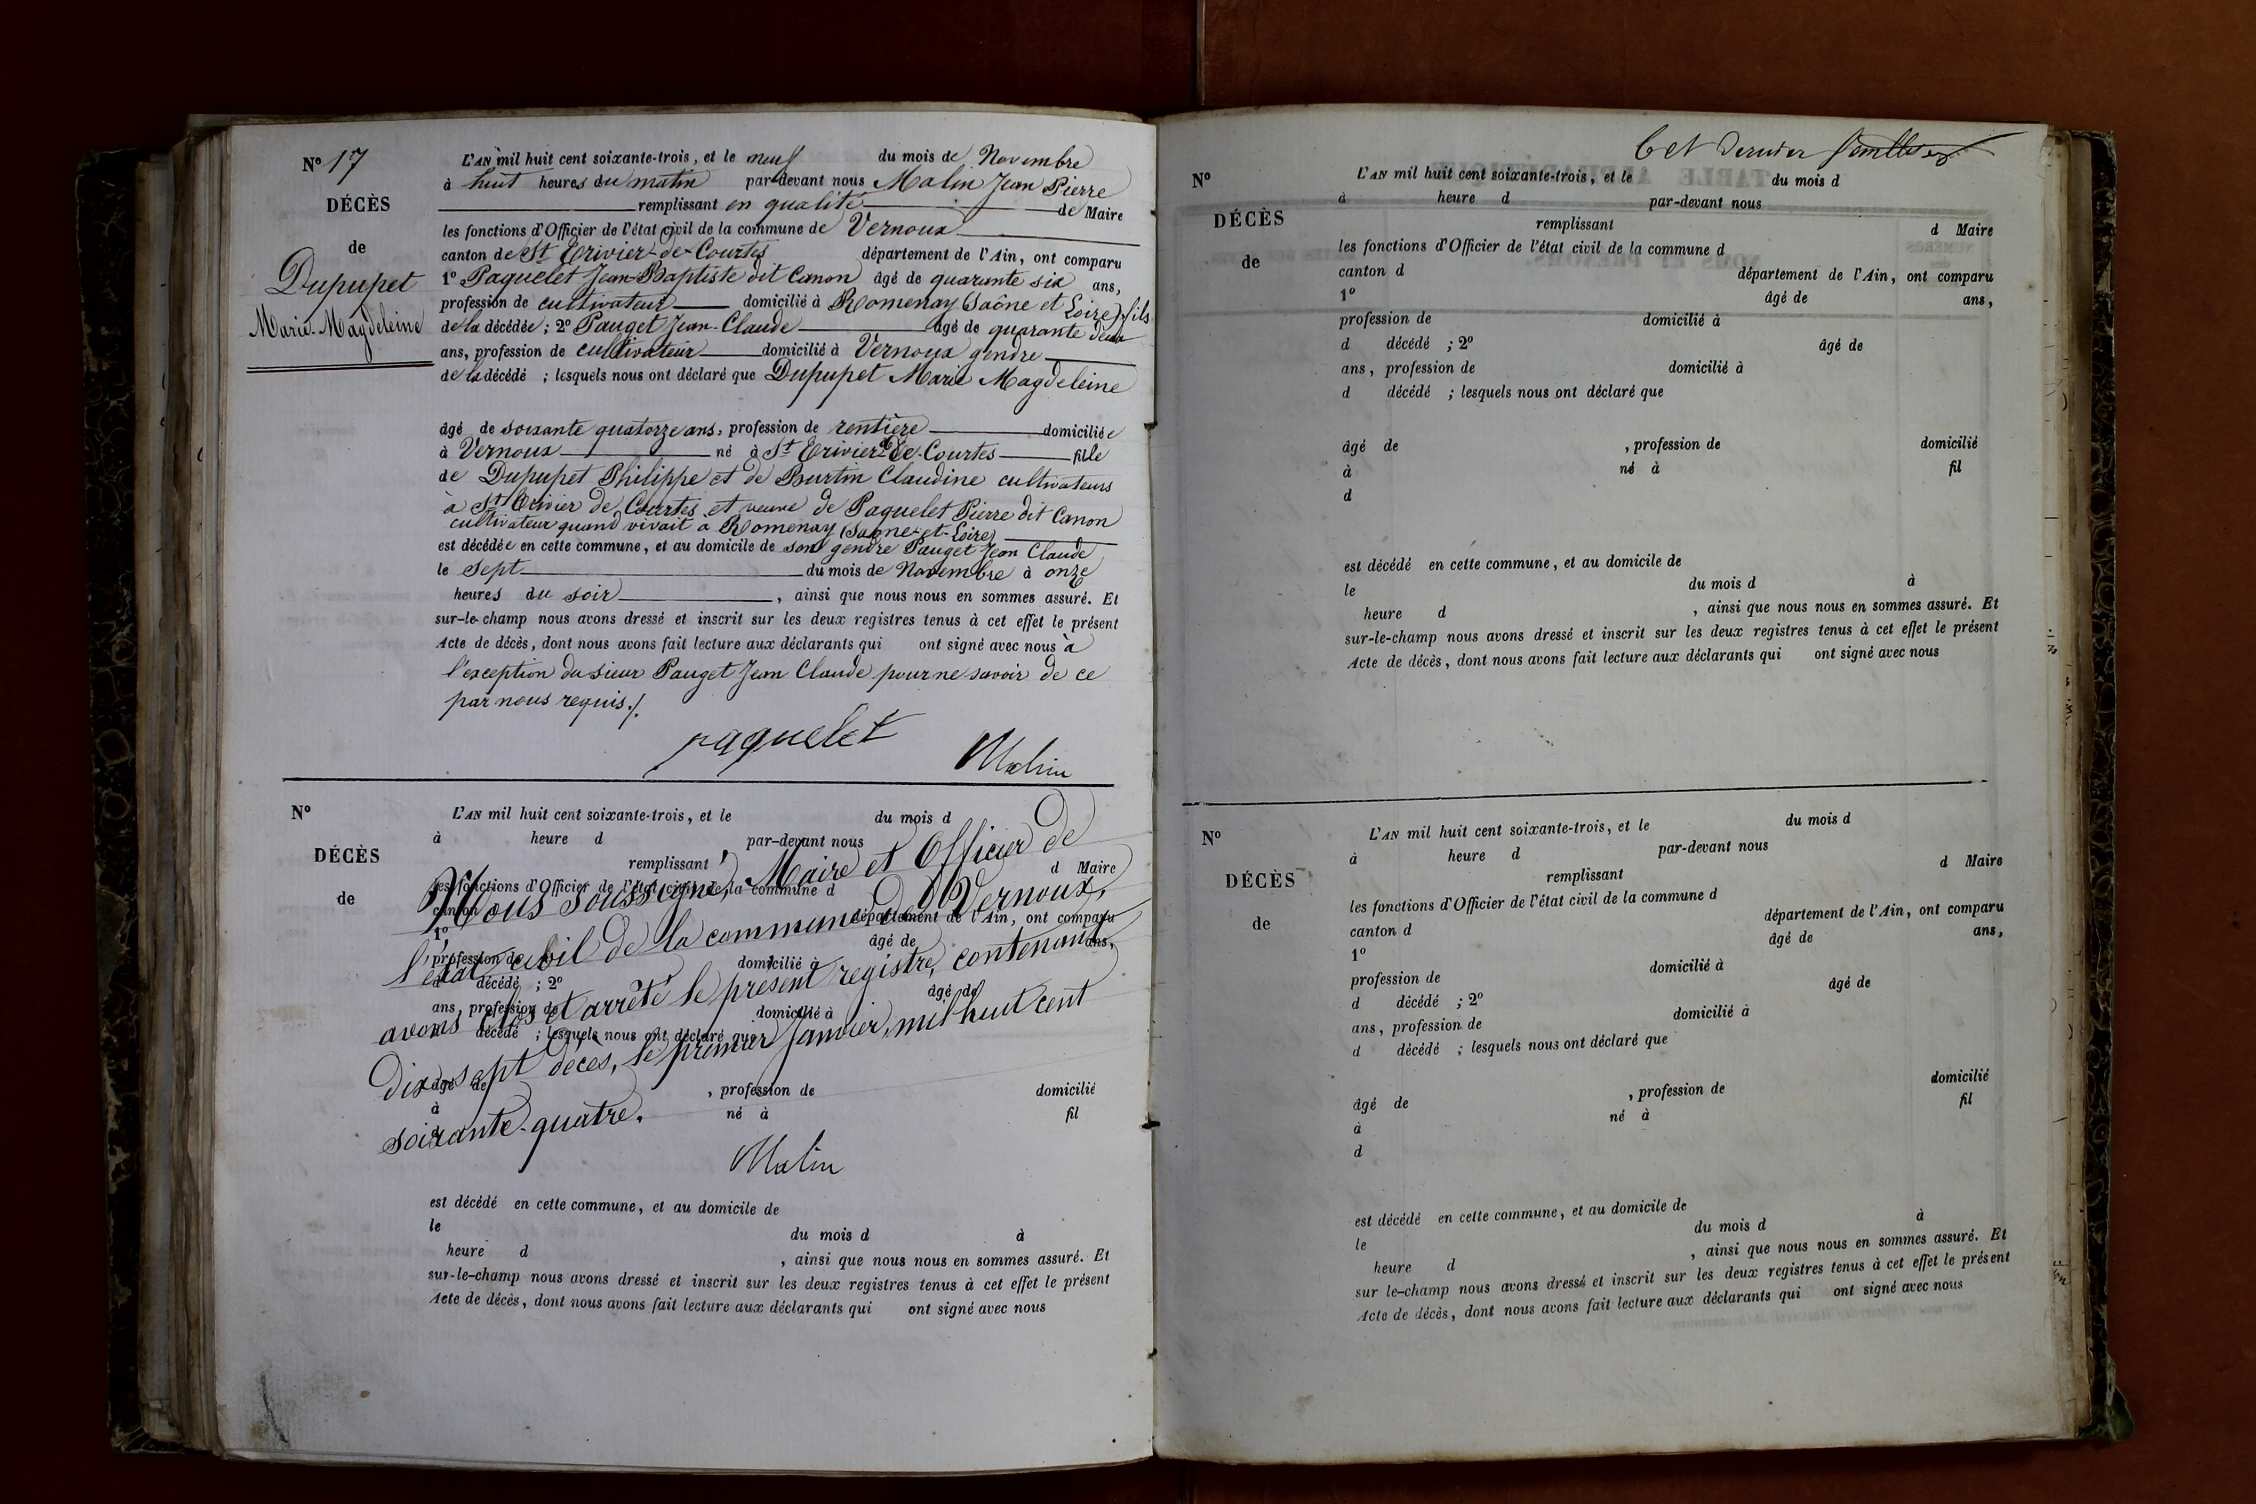 Nº 17
DÉCÈS
de
Dupupet
Marie-Magdeleine
L'AN mil huit cent soixante-trois, et le neuf du mois de Novembre
à huit heures du matin par-devant nous Malin Jean Pierre
remplissant en qualité de Maire
les fonctions d'Officier de l'état civil de la commune de Vernoux
canton de St Trivier-de-Courtes département de l'Ain, ont comparu
1º Paquelet Jean-Baptiste dit Canon âgé de quarante six ans,
profession de cultivateur domicilié à Romenay (Saône et Loire) fils
de la décédée ; 2º Pauget Jean-Claude âgé de quarante deux
ans, profession de cultivateur domicilié à Vernoux gendre
de la décédé ; lesquels nous ont déclaré que Dupupet Marie Magdeleine
âgé de soixante quatorze ans, profession de rentière domiciliée
à Vernoux né à St Trivier de Courtes fille
de Dupupet Philippe et de Burtin Claudine cultivateurs
à St Trivier de Courtes et veuve de Paquelet Pierre dit Canon
cultivateur quand vivait à Romenay (Saône-et-Loire)
est décédée en cette commune, et au domicile de son gendre Pauget Jean Claude
le sept du mois de Novembre à onze
heures du soir, ainsi que nous nous en sommes assuré. Et
sur-le-champ nous avons dressé et inscrit sur les deux registres tenus à cet effet le présent
Acte de décès, dont nous avons fait lecture aux déclarants qui ont signé avec nous à
l'exception du sieur Pauget Jean Claude pour ne savoir de ce
par nous requis./.
paquelet
Malin
Nº
DÉCÈS
de
L'AN mil huit cent soixante-trois, et le du mois d
à heure d par-devant nous
remplissant d Maire
les fonctions d'Officier de l'état civil de la commune d
canton d département de l'Ain, ont comparu
1º âgé de ans,
profession de domicilié à
d décédé ; 2º âgé de
ans, profession de domicilié à
d décédé ; lesquels nous ont déclaré que
âgé de , profession de domicilié
à né à fil
d
Nous soussigné, Maire et Officier de
l'état civil de la commune de Vernoux,
avons clos et arrêté le présent registre, contenant
dix-sept décès, le premier Janvier, mil huit cent
soixante-quatre.
Malin
est décédé en cette commune, et au domicile de
le du mois d à
heure d , ainsi que nous nous en sommes assuré. Et
sur-le-champ nous avons dressé et inscrit sur les deux registres tenus à cet effet le présent
Acte de décès, dont nous avons fait lecture aux déclarants qui ont signé avec nous
Cet dernier feuillet
Nº
DÉCÈS
de
L'AN mil huit cent soixante-trois, et le du mois d
à heure d par-devant nous
remplissant d Maire
les fonctions d'Officier de l'état civil de la commune d
canton d département de l'Ain, ont comparu
1º âgé de ans,
profession de domicilié à
d décédé ; 2º âgé de
ans, profession de domicilié à
d décédé ; lesquels nous ont déclaré que
âgé de , profession de domicilié
à né à fil
d
est décédé en cette commune, et au domicile de
le du mois d à
heure d , ainsi que nous nous en sommes assuré. Et
sur-le-champ nous avons dressé et inscrit sur les deux registres tenus à cet effet le présent
Acte de décès, dont nous avons fait lecture aux déclarants qui ont signé avec nous
Nº
DÉCÈS
de
L'AN mil huit cent soixante-trois, et le du mois d
à heure d par-devant nous
remplissant d Maire
les fonctions d'Officier de l'état civil de la commune d
canton d département de l'Ain, ont comparu
1º âgé de ans,
profession de domicilié à
d décédé ; 2º âgé de
ans, profession de domicilié à
d décédé ; lesquels nous ont déclaré que
âgé de , profession de domicilié
à né à fil
d
est décédé en cette commune, et au domicile de
le du mois d à
heure d , ainsi que nous nous en sommes assuré. Et
sur le-champ nous avons dressé et inscrit sur les deux registres tenus à cet effet le présent
Acte de décès, dont nous avons fait lecture aux déclarants qui ont signé avec nous